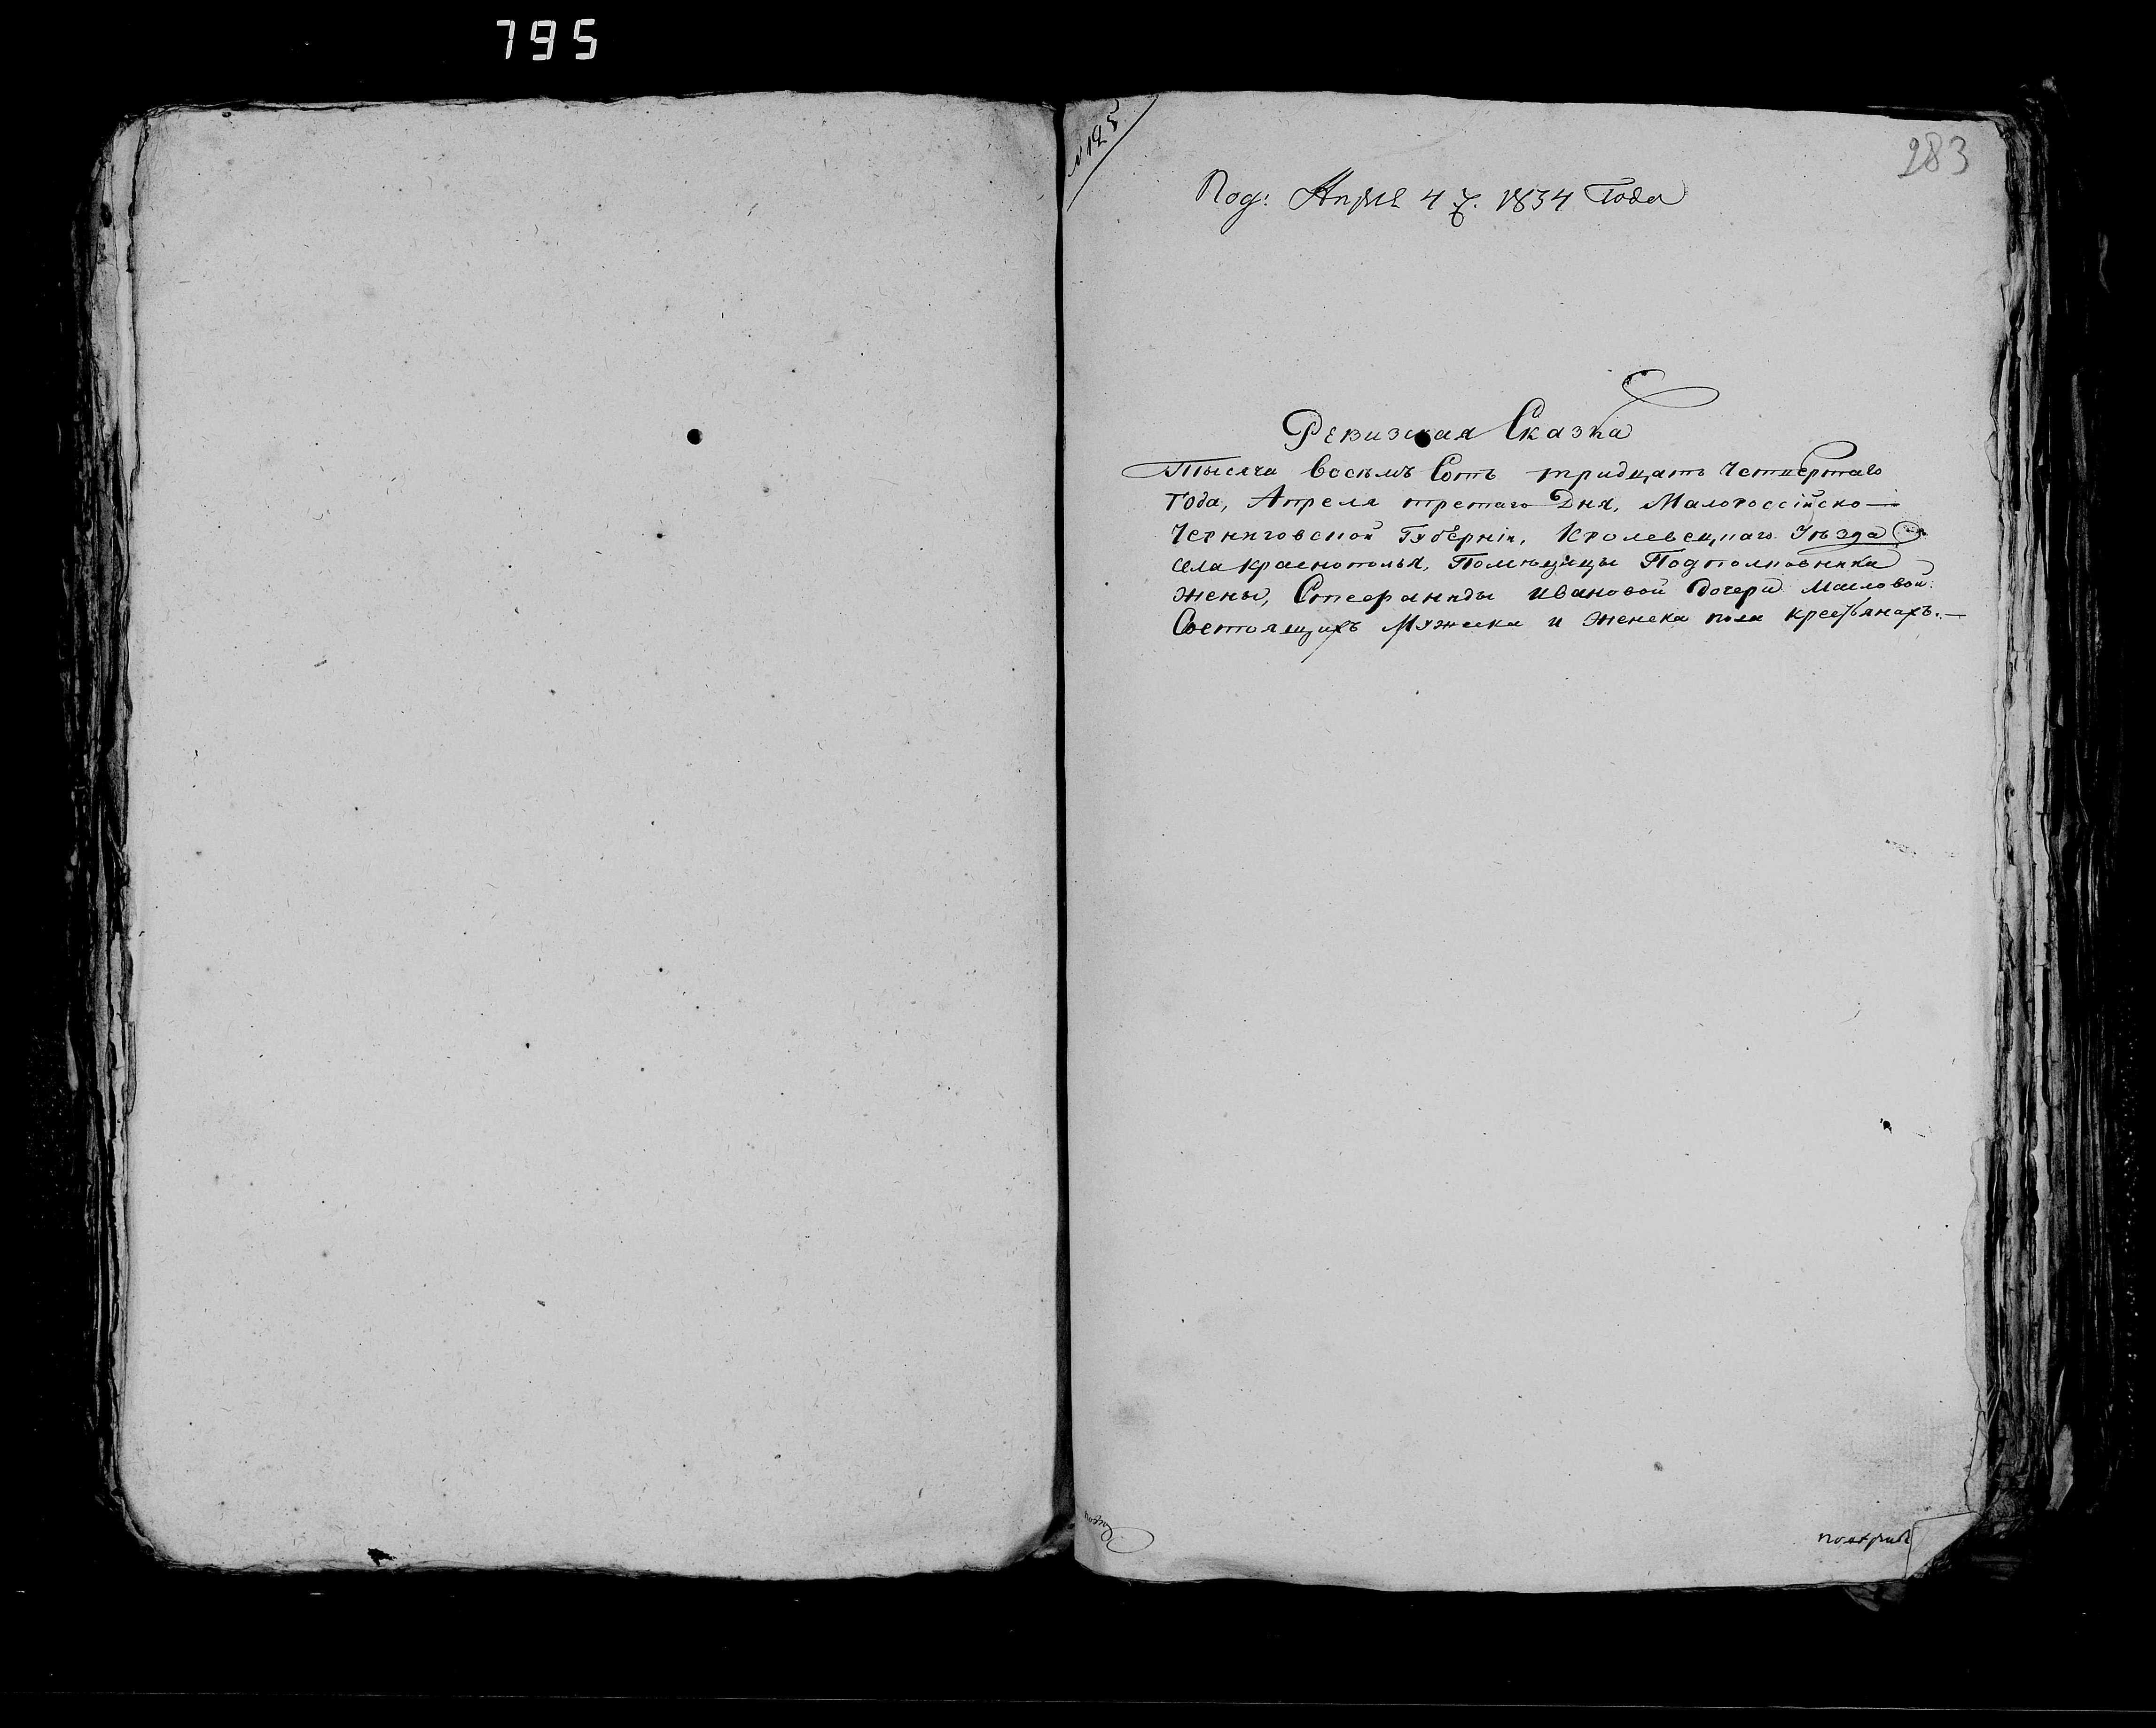 795
№ 125
283
Под: Апреля 4 д. 1834 Года
Ревизская Сказка
Тысяча восемъ Сотъ тридцать Четвертаго
Года, Апреля третаго Дня, Малороссійско—
Черниговской Губерніи, Кролевецкаго Уѣзда
села Краснополья, Помѣщицы Подполковника
жены, Стефаниды Ивановой Дочери Масловой
Состоящихъ Мужеска и Женска пола крестьянахъ.—